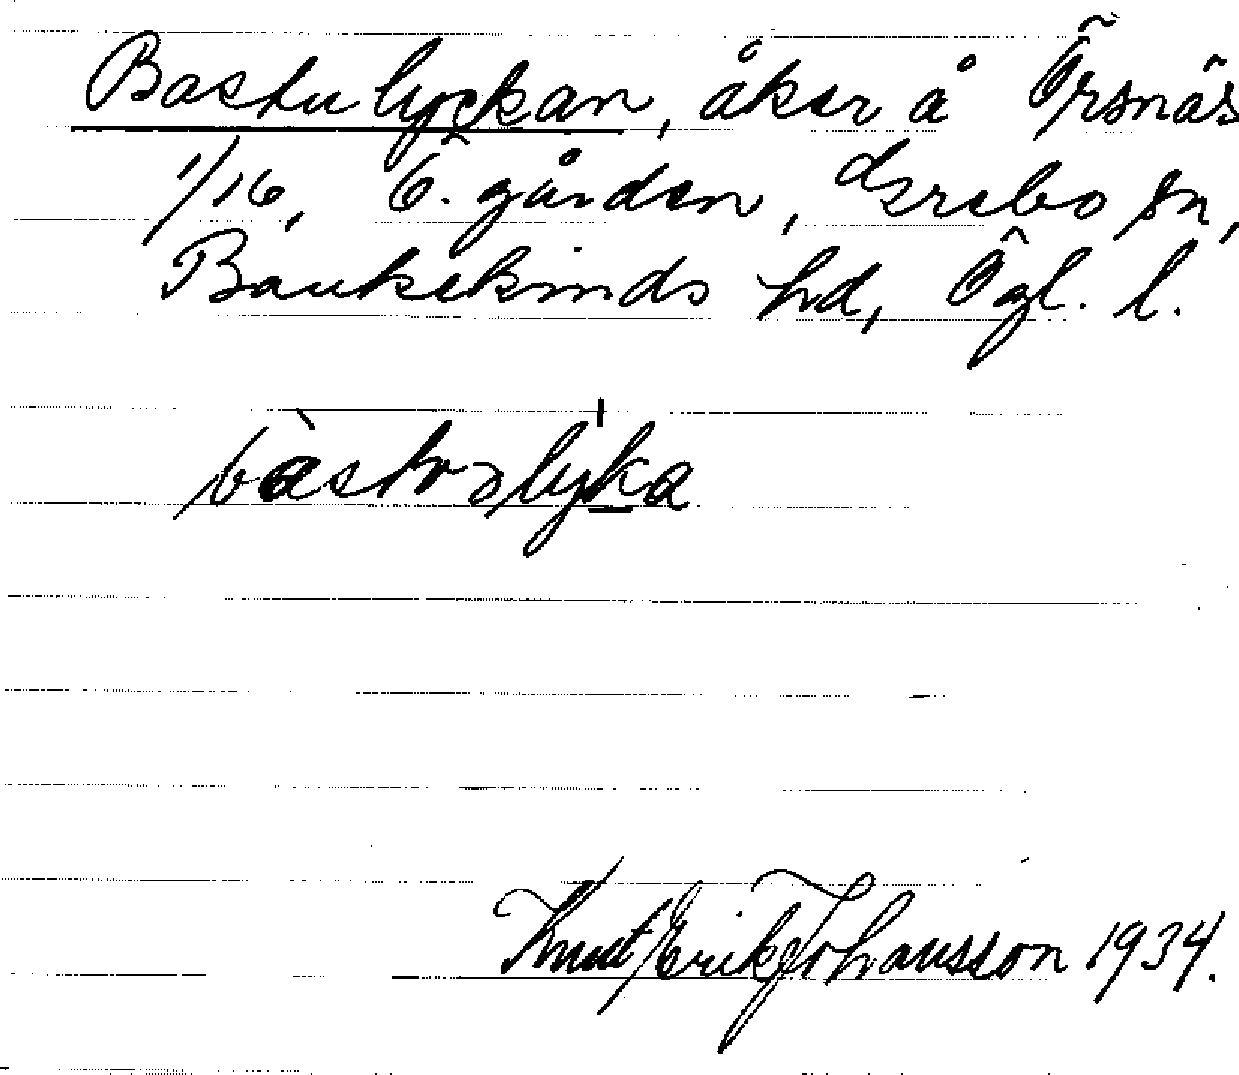 Bastulyckan, åker å Örsnäs
1/16, Ö. gården, Grebo sn,
Bankekinds hd, Ögl. l.
bàstɷlyka
Knut Erik Johansson 1934.